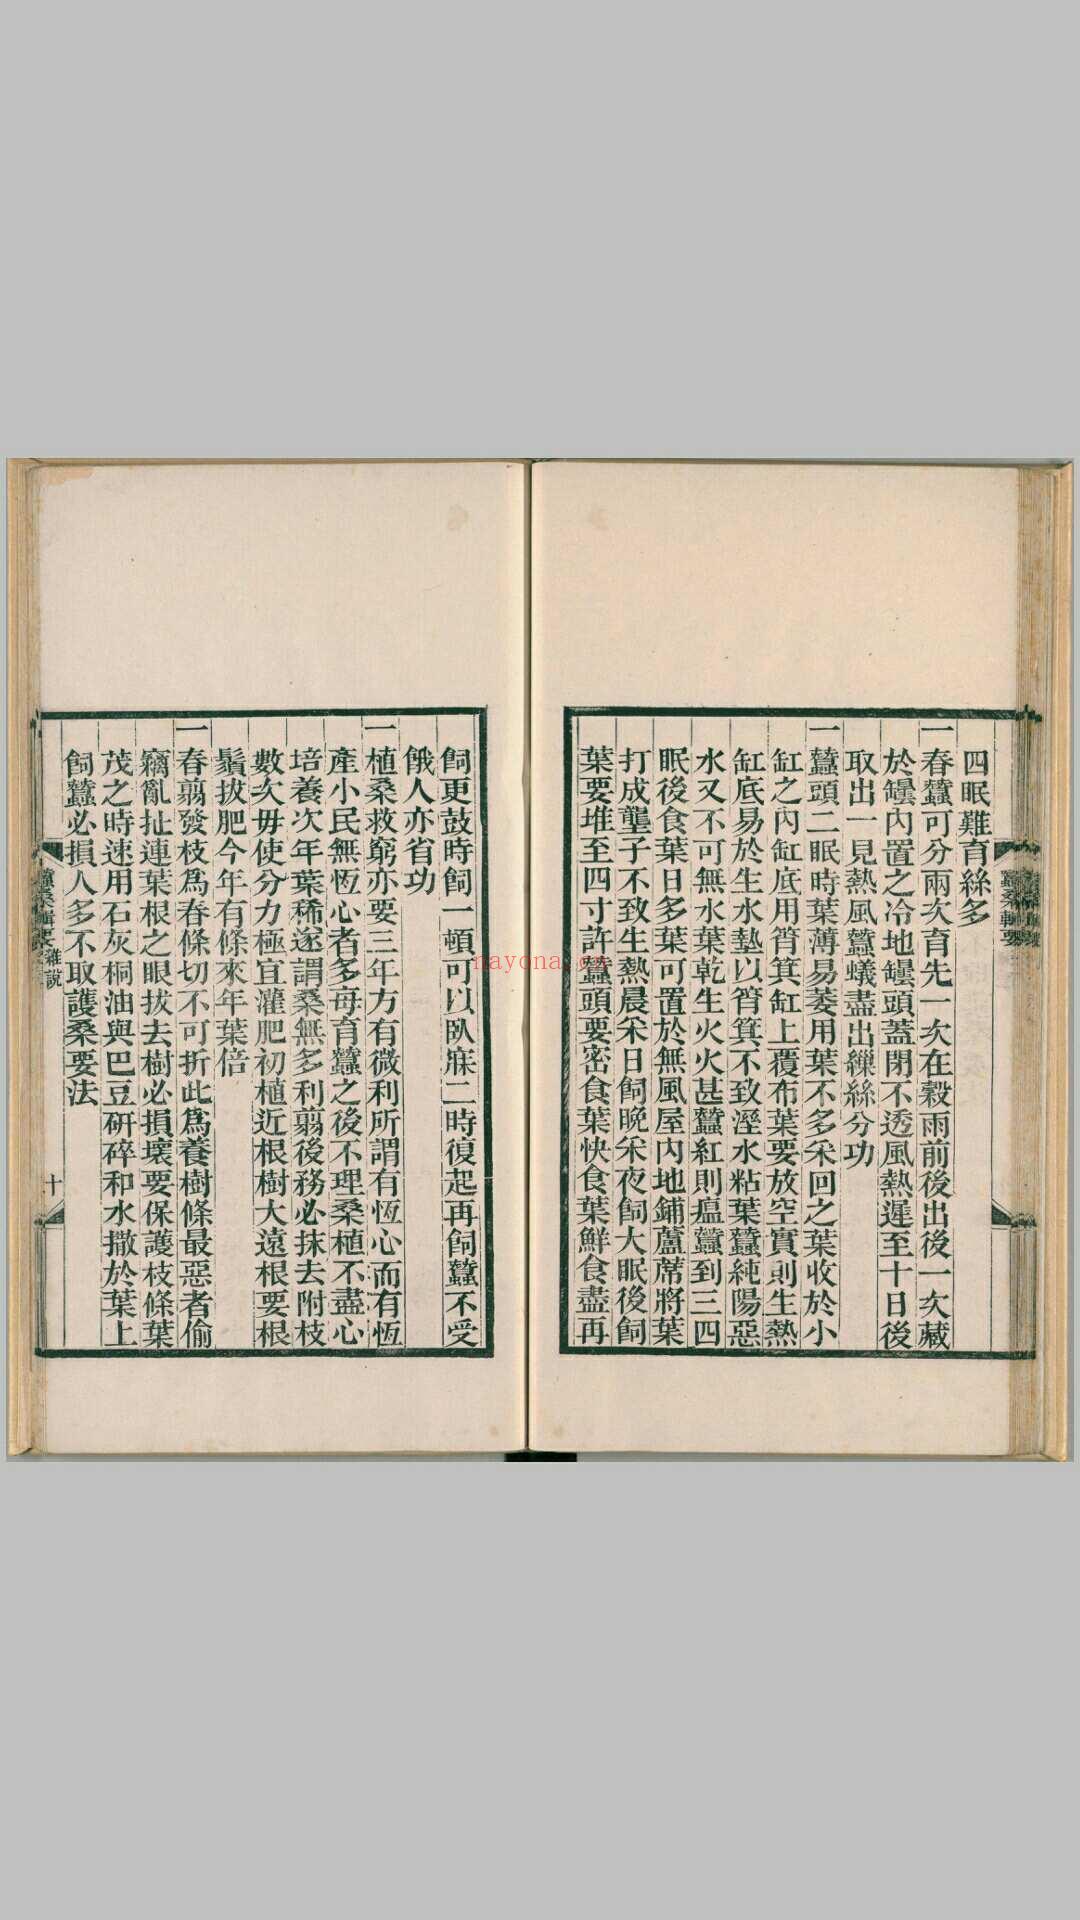 四眠難育絲多
一春蠶可分兩次育先一次在穀雨前後出後一次藏
於罎內置之冷地罎頭蓋閉不透風熱遲至十日後
取出一見熱風蠶蟻盡出繅絲分功
一蠶頭二眠時葉薄易萎用葉不多采回之葉收於小
缸之內缸底用筲箕缸上覆布葉要放空實則生熱
缸底易於生水墊以筲箕不致溼水粘葉蠶純陽惡
水又不可無水葉乾生火火甚蠶紅則瘟蠶到三四
眠後食葉日多葉可置於無風屋內地鋪蘆蓆將葉
打成壟子不致生熱晨采日飼晚采夜飼大眠後飼
葉要堆至四寸許蠶頭要密食葉快食葉鮮食盡再
蠶桑輯要
飼更鼓時飼一頓可以臥寐二時復起再飼蠶不受
餓人亦省功
一植桑救窮亦要三年方有微利所謂有恆心而有恆
產小民無恆心者多每育蠶之後不理桑植不盡心
培養次年葉稀遂謂桑無多利翦後務必抹去附枝
數次毋使分力極宜灌肥初植近根樹大遠根要根
鬚拔肥今年有條來年葉倍
一春翦發枝爲春條切不可折此爲養樹條最惡者偷
竊亂扯連葉根之眼拔去樹必損壞要保護枝條葉
茂之時速用石灰桐油與巴豆研碎和水撒於葉上
飼蠶必損人多不取護桑要法
蠶桑輯要 雜說
十
nayona.cn